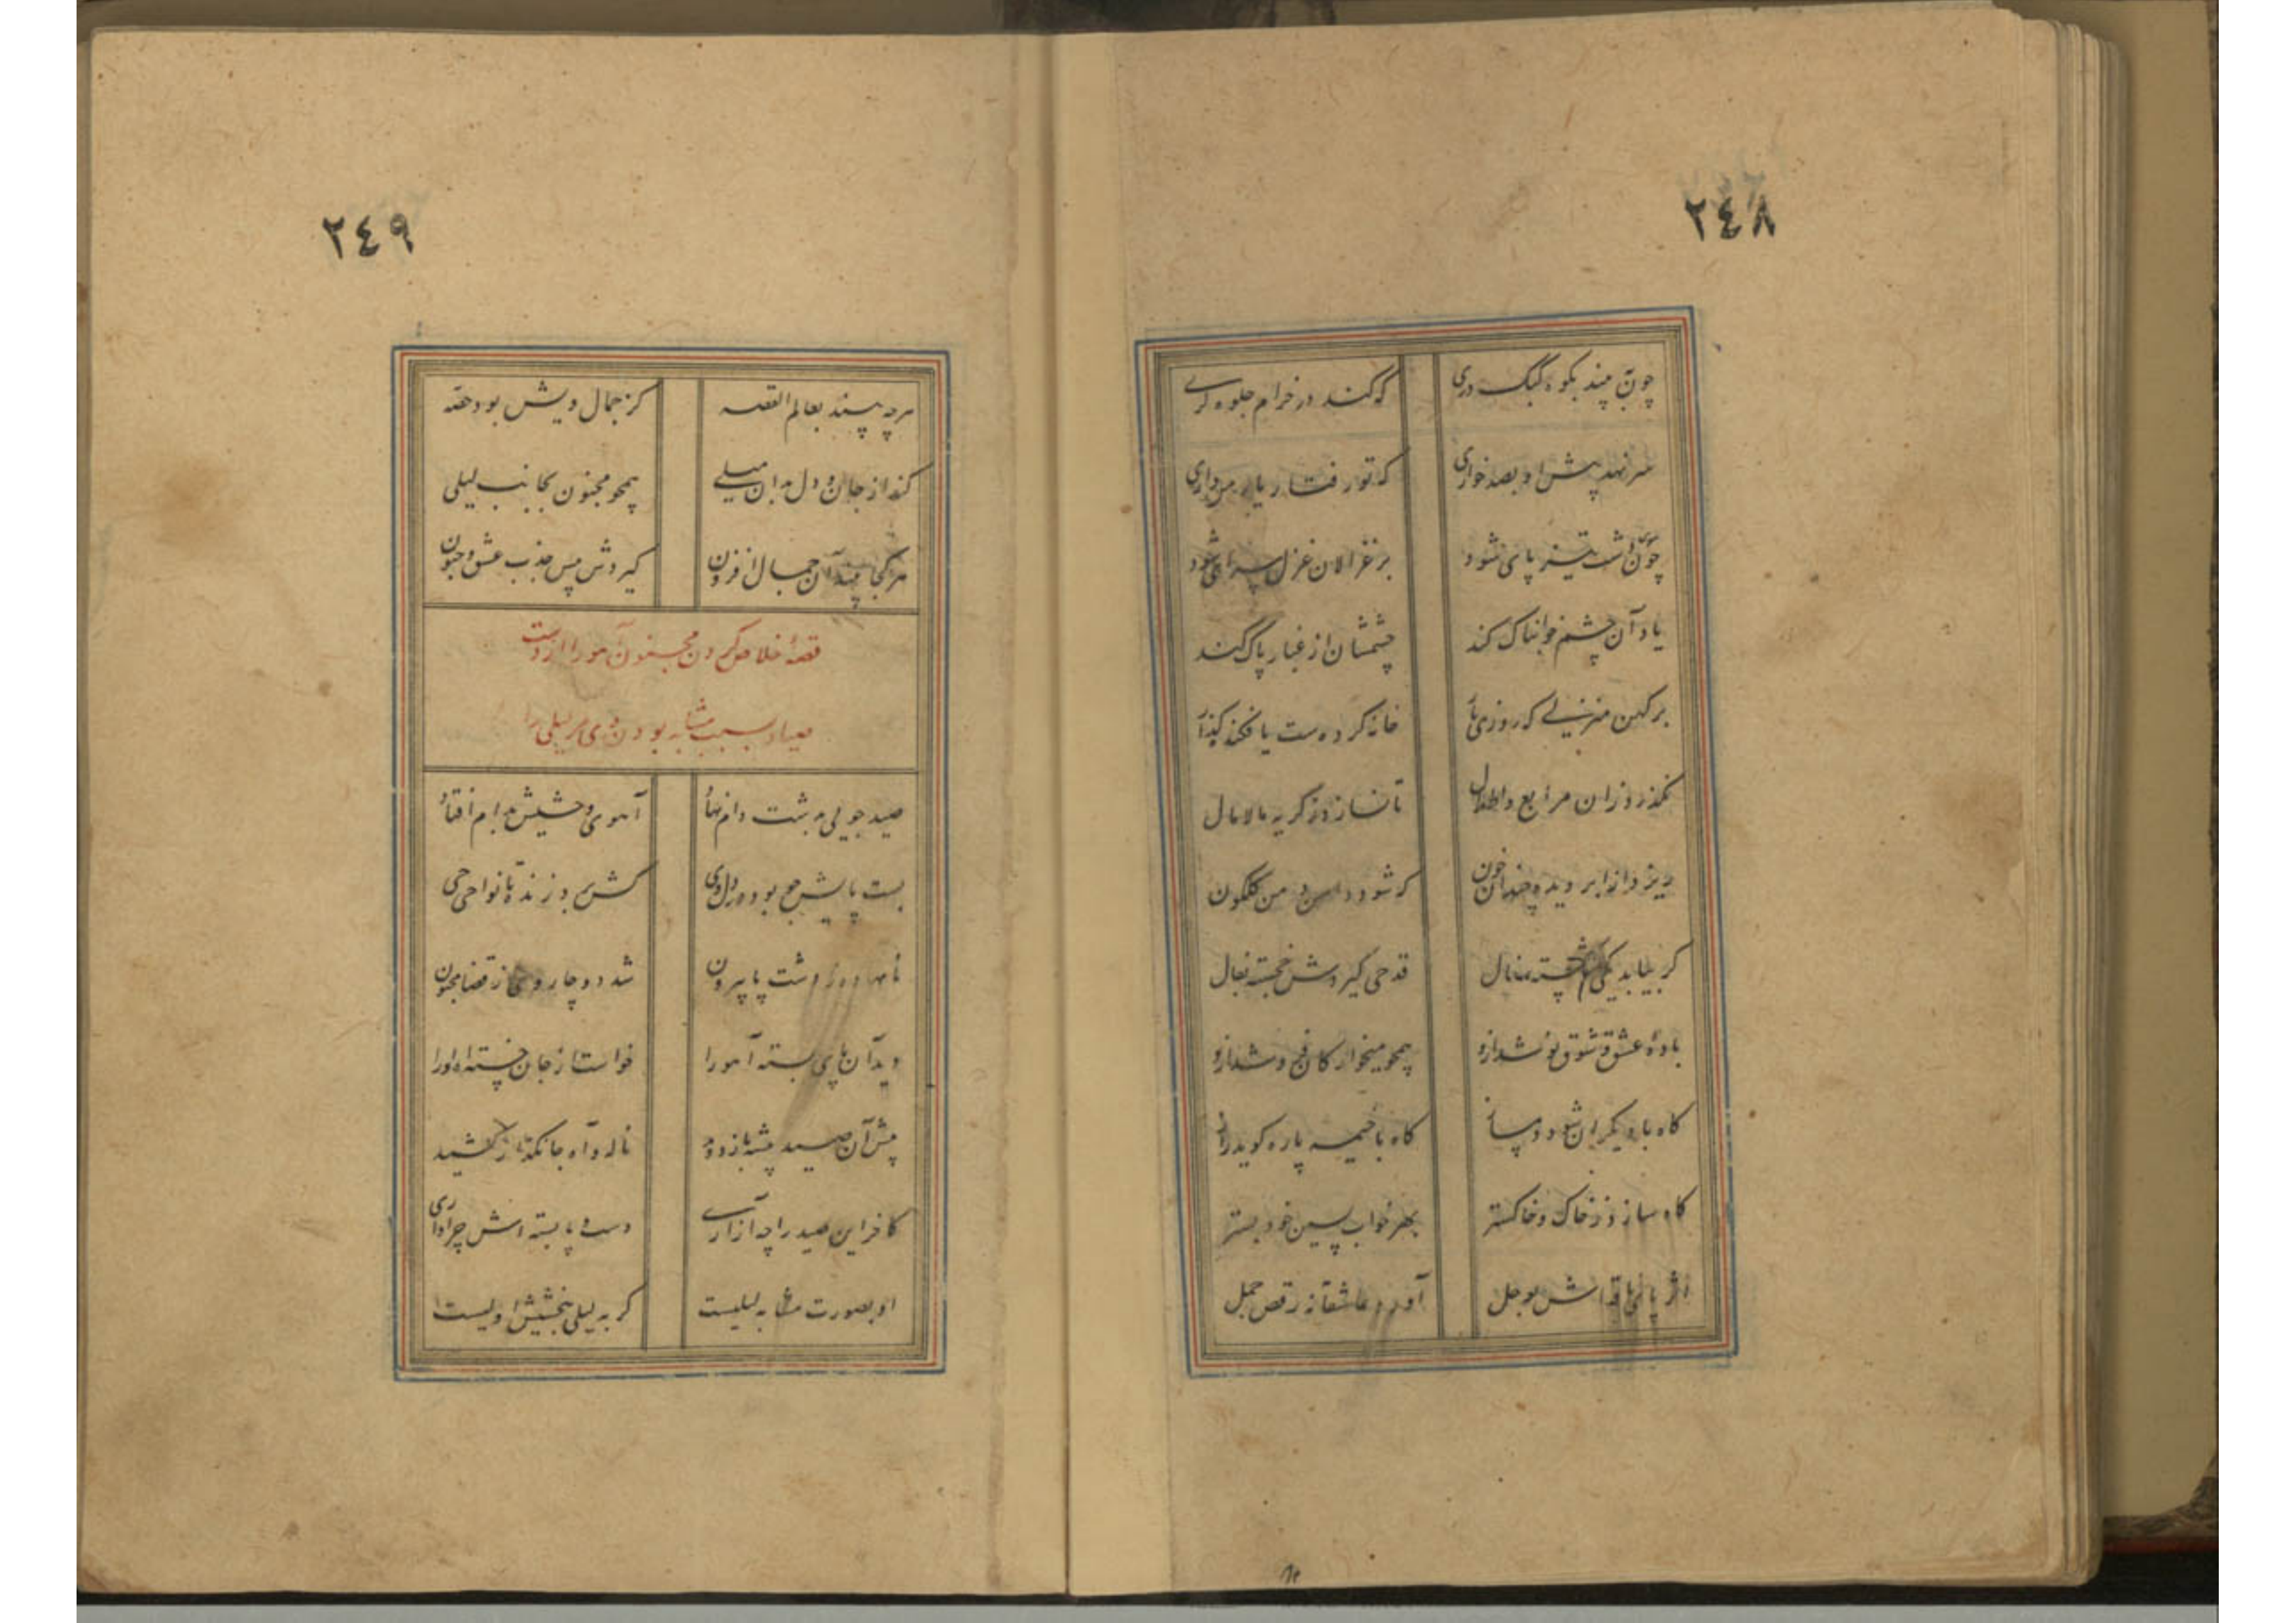 ٢٤٨
چون به بیند بکوه کبک دری که کند در خرام جلوه کری
سر نهد پیش او بصد خواری که تو رفتار یار من داری
چون بدشت تیز پای شود بر غزالان غزل سرای شود
یاد آن چشم خوابناک کند چشمشان از غبار پاک کند
بر کهن منزلی که روزی یار خانه کردست یا فکنده کذار
نکذرد زان مرابع و اطلال تا نسازد ز کریه مالامال
ریزد از ابر دیده چندان خون که شود دامن دمن کلکون
کر بیابد یکی شکسته سفال قدحی کیردش خجسته بفال
باده عشق و شوق نوشد ازو همچو میخوار کان خروشد ازو
کاه با دیکدان شود دمساز کاه با خیمه پاره کوید راز
کاه سازد ز خاک و خاکستر بهر خواب پسین خود بستر
اثر پای ناقه اش بوحل آورد عاشقانه رقص جمل
٢٤٩
هر چه بیند بعالم القصه کز جمال ویش بود حصه
کند از جان و دل بدان میلی همچو مجنون بجانب لیلی
هر کجا بیند آن جمال افزون کیردش پیش جذب عشق و جنون
قصه خلاص کردن مجنون آهو را از دست
صیاد بسبب مشابه بودن وی مر لیلی را
صید جویی بدشت دام نهاد آهوی وحشیش بدام افتاد
بست پایش چو بود در دل وی کش برد زنده تا نواحی حی
نامده از دشت پا بیرون شد دوچار وی از قضا مجنون
دید آن پای بسته آهو را خواست از جان خسته آه او را
پیش آن صید پیشه باز دوید ناله و آه جانکداز کشید
کافر این صید را چه آزاری دست و پا بسته اش چرا داری
او بصورت مشابه لیلیست کر به لیلی ببخشیش اولیست